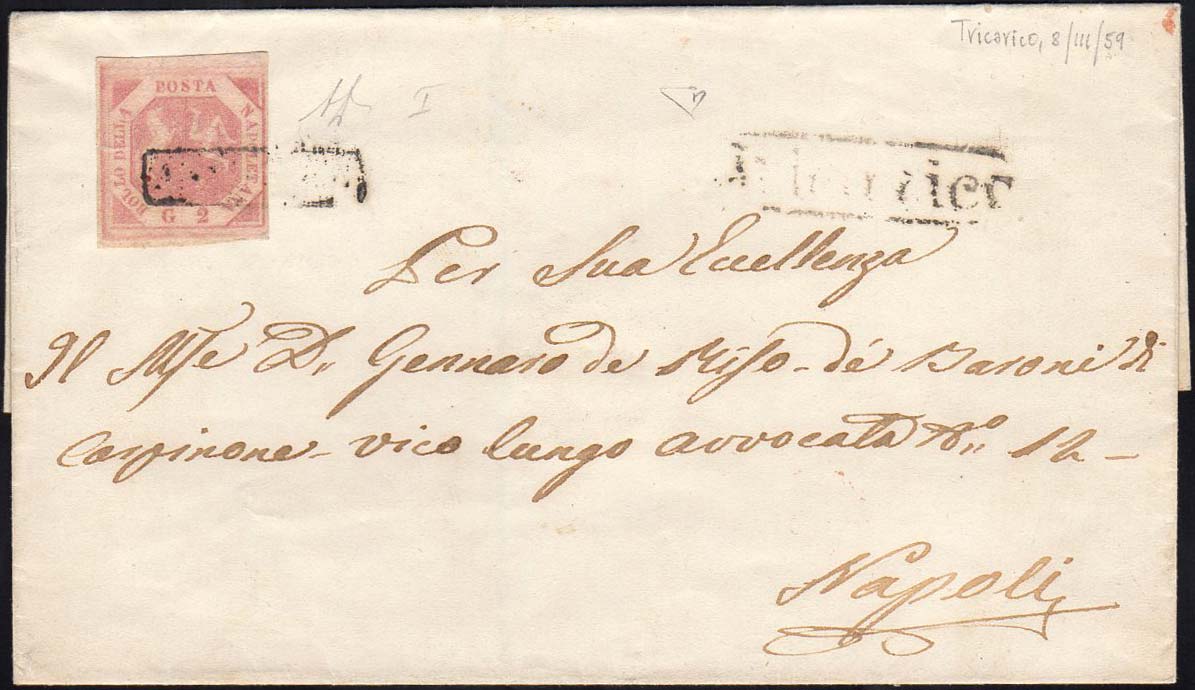 Tricarico, 8/III/59
POSTA
NAPOLETANA
BOLLO DELLA
G 2
I
Per Sua Eccellenza
Il Mse Dn Gennaro de Riso - de' Baroni di
Carpinone - vico lungo avvocata No 12 -
Napoli